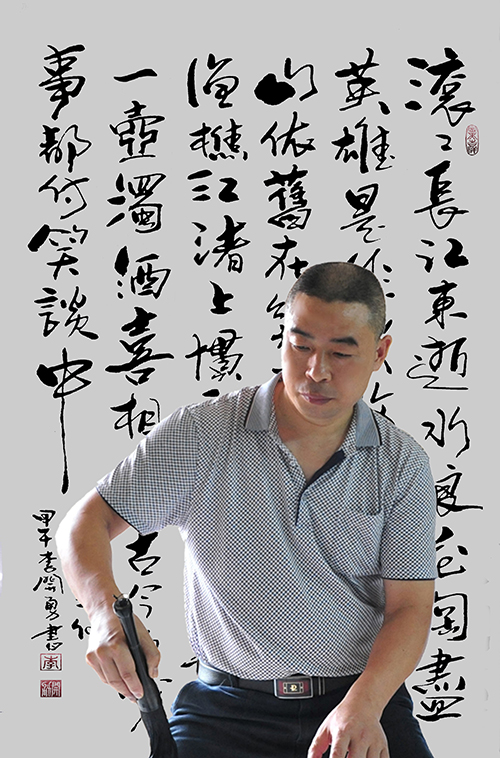 滚〻長江東逝水浪花淘盡
英雄是
山依舊在
漁樵江渚上慣
一壺濁酒喜相
古今
事都付笑談中
甲午李開勇書
李